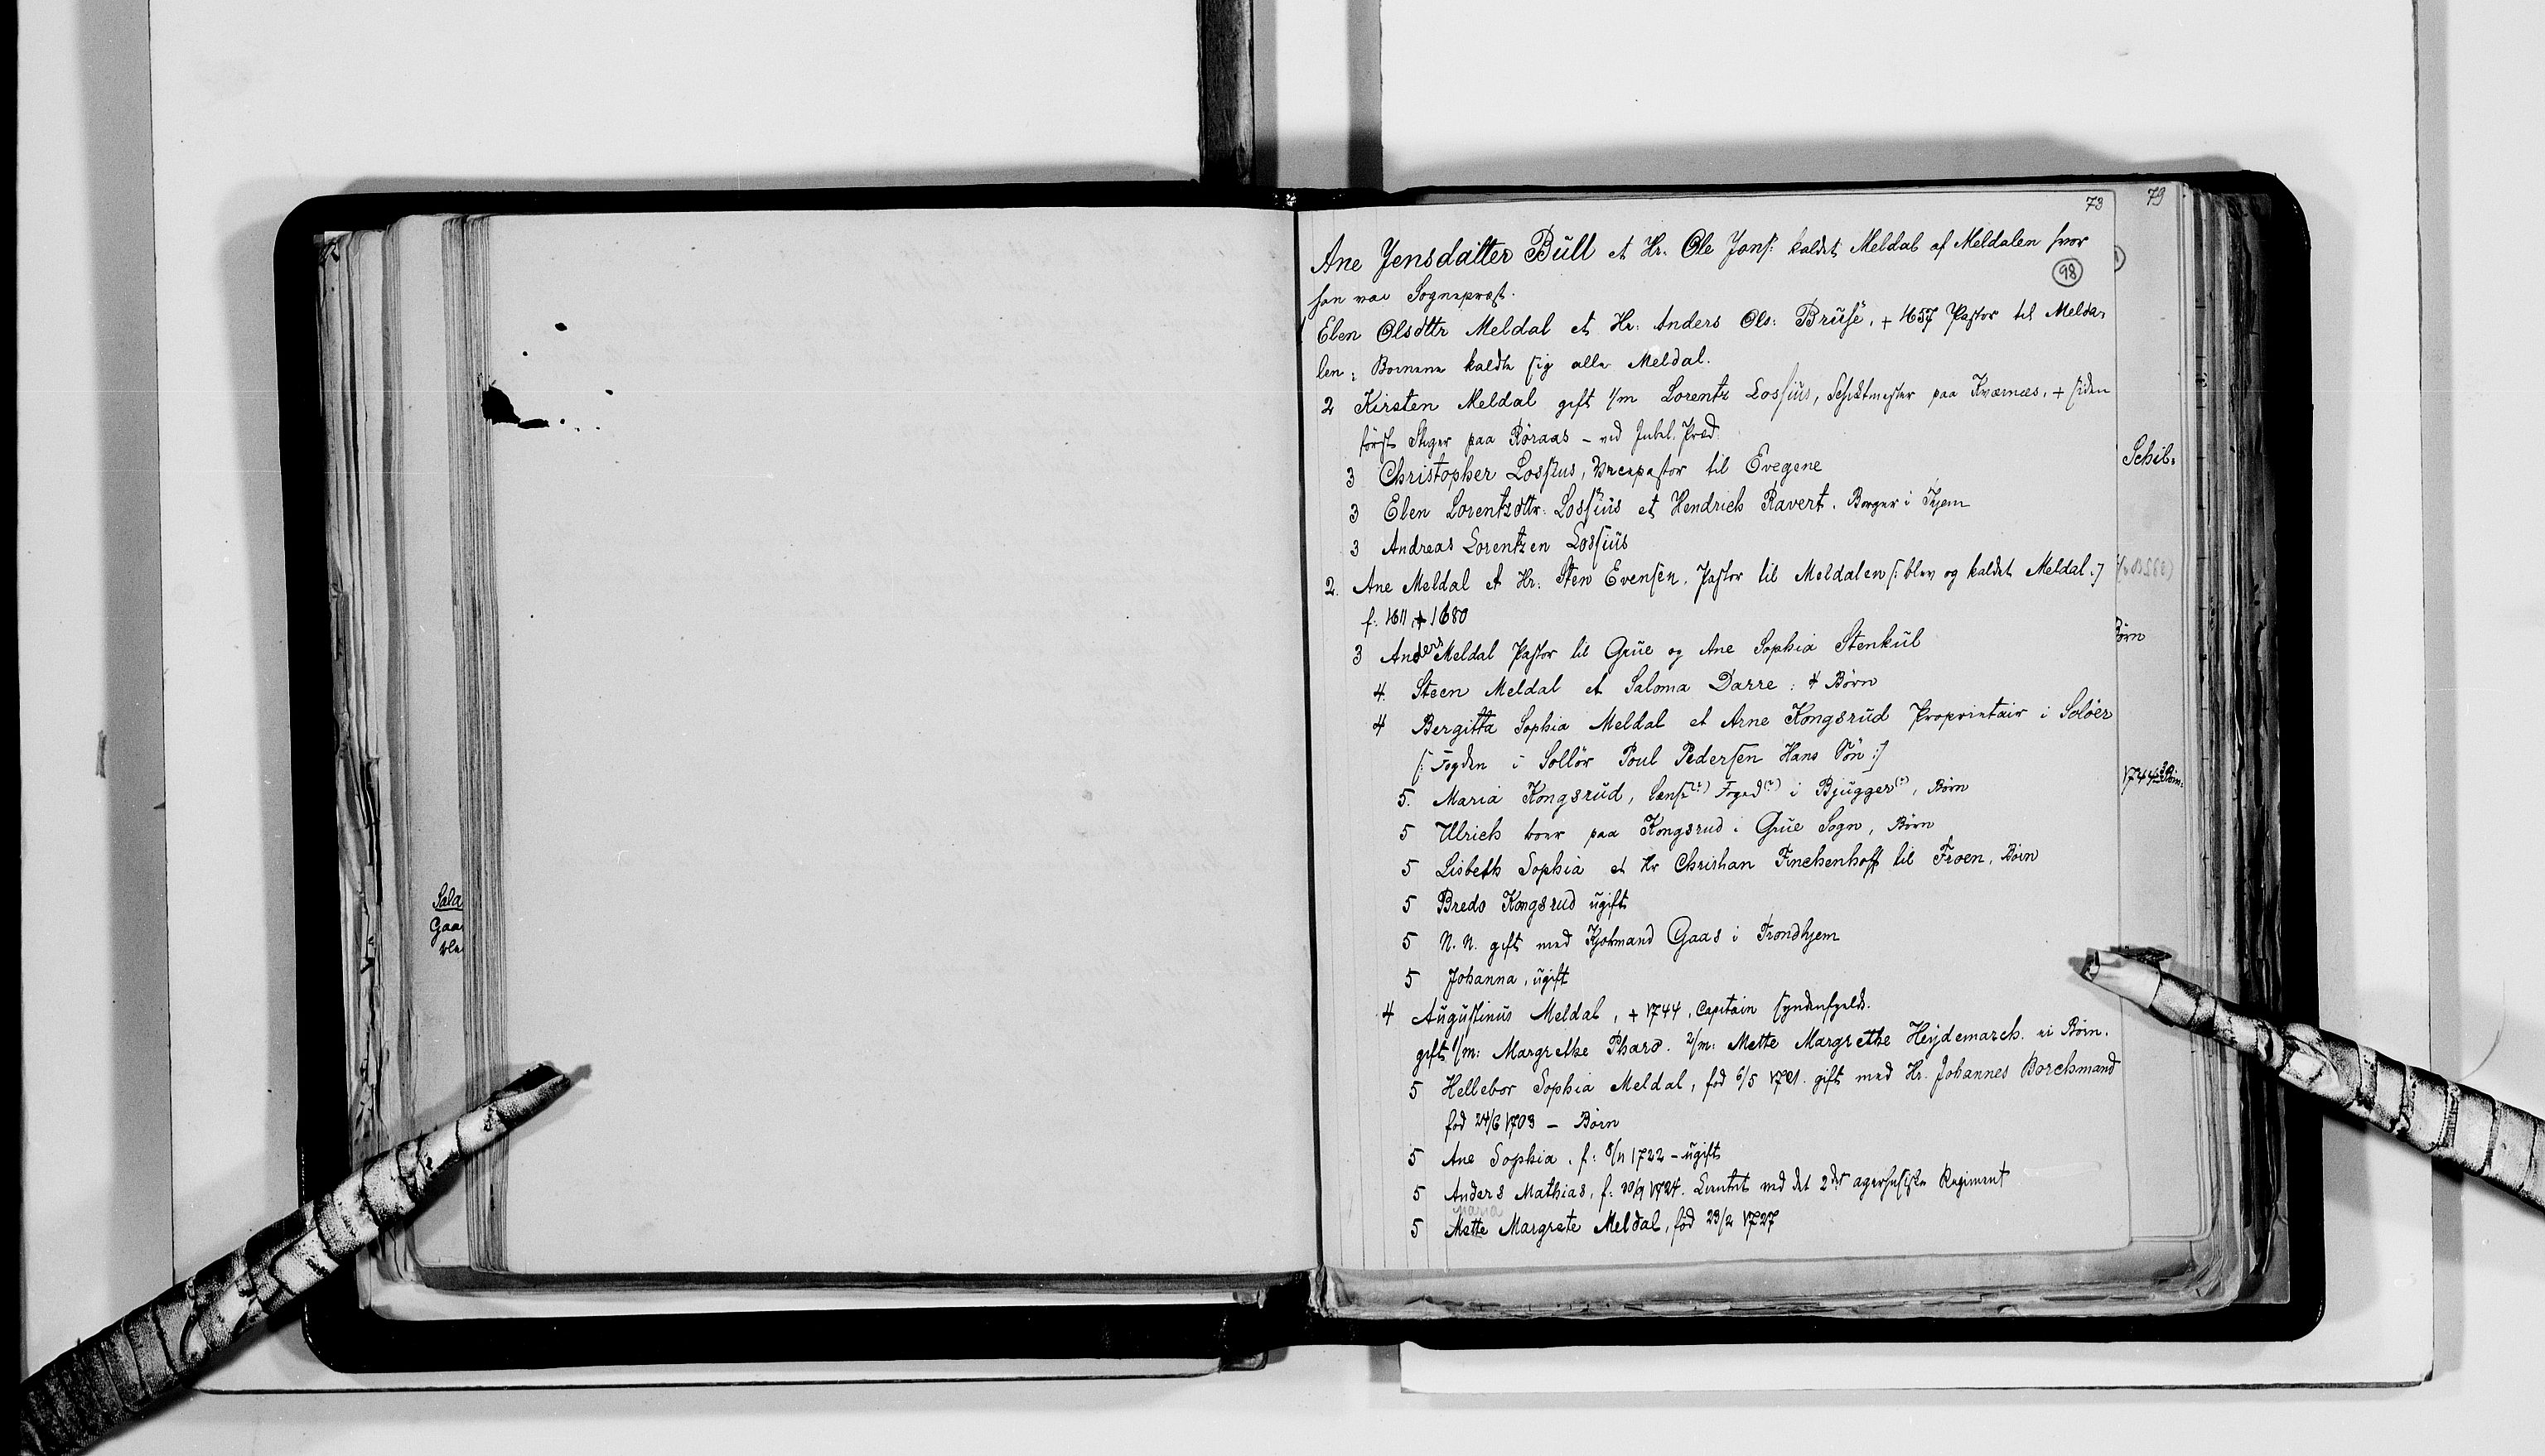 73
79
Ane Jensdatter Büll et Hr. Ole Jons: kaldet Meldal af Meldalen hvor
98
han var Sognepræst.
Elen Olsdttr Meldal et Hr. Anders Ols: Brüse, + 1657 Pastor til Melda-
len; Børnene kaldte sig alle Meldal.
2 Kirsten Meldal gift 1/m Lorentz Lossius, paa Kværnes, + siden
først Stiger paa Röraas - ved Jubel. Præd.
3 Christopher Lossius, Vicepastor til Evegene
Schil-
3 Elen Lorentzdttr. Lossiüs et Hendrich Ravert. Borger i Thjem
3 Andreas Lorentzen Lossiüs
2. Ane Meldal et Hr. Sten Evensen, Pastor til Meldalen /: blev og kaldet Meldal :/
f. 1611 + 1680
3 Anders Meldal Pastor til Grüe og Ane Sophia Stenkül
Børn
4. Steen Meldal et Saloma Darre: 4 Børn
4 Bergitta Sophia Meldal et Arne Kongsrüd Proprietair i Solöer
/: Fogden i Sollör Poul Pedersen Hans Sön :/
5. Maria Kongsrüd, Foged(?) i Bjugger(?), Børn
1744
5 Ulrich boer paa Kongsrud i Grüe Sogn, Børn
5 Lisbeth Sophia et Hr Christian Finchenhoff til Froen, Børn
Sala
5 Bredo Kongsrud ugift
Gaa
5 N. N. gift med Kjøbmand Gaas i Trondhjem
5 Johanna, ugift
4 Augustinus Meldal, + 1744, Capitain syndenfjelds.
gift 1/m: Margrethe Pharo. 2/m: Mette Margrethe Heydemarch. ei Børn.
5 Hellebor Sophia Meldal, fød 6/5 1721. gift med Hr. Johannes Borchmand
fød 24/6 1703 - Børn
5 Ane Sophia. f: 8/11 1722 - ugift
5 Anders Mathias, f: 30/9 1724. Lieutnt ved det 2det agershusiske Regiment
Maria
5 Mette Margrete Meldal, fød 23/2 1727